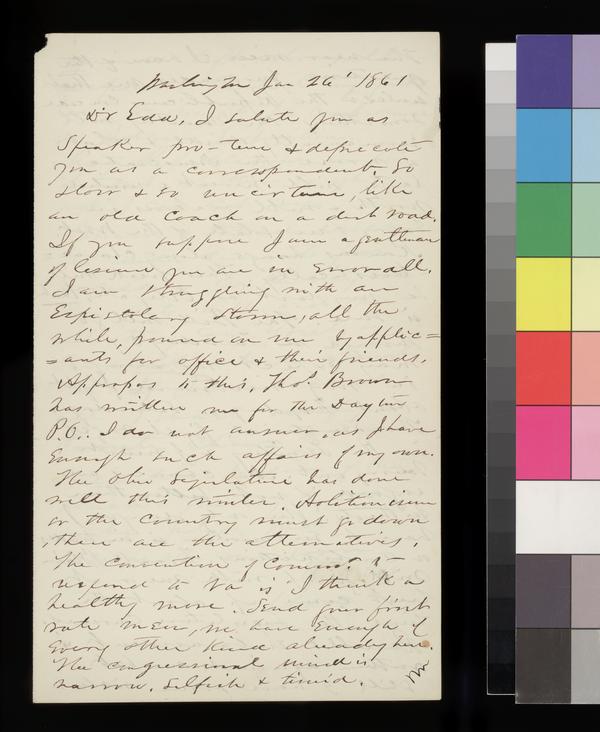 Washington Jan 26' 1861
Dr Edd, I salute you as
Speaker pro-tem & depricate
you as a correspondent. So
slow & so uncirtain, like
an old coach on a dirt road.
If you suppose I am a gentleman
of lesiure you are in error all.
I am struggling with an
Expistolary storm, all the
while, poured on me by applic=
=ants for office & their friends.
Appropos to this, Thos. Brown
has written me for the Dayton
P.O.. I do not answer, as I have
enough such affairs of my own.
The Ohio Legislature has done
well this winter. Abolitionism
or the country must go down
, these are the alternatives.
The Convention of Commrs. to
respond to Va is I think a
healthy move. Send your first
rate men, we have Enough of
every other kind already here.
The congressional mind is
narrow, selfish & timid.